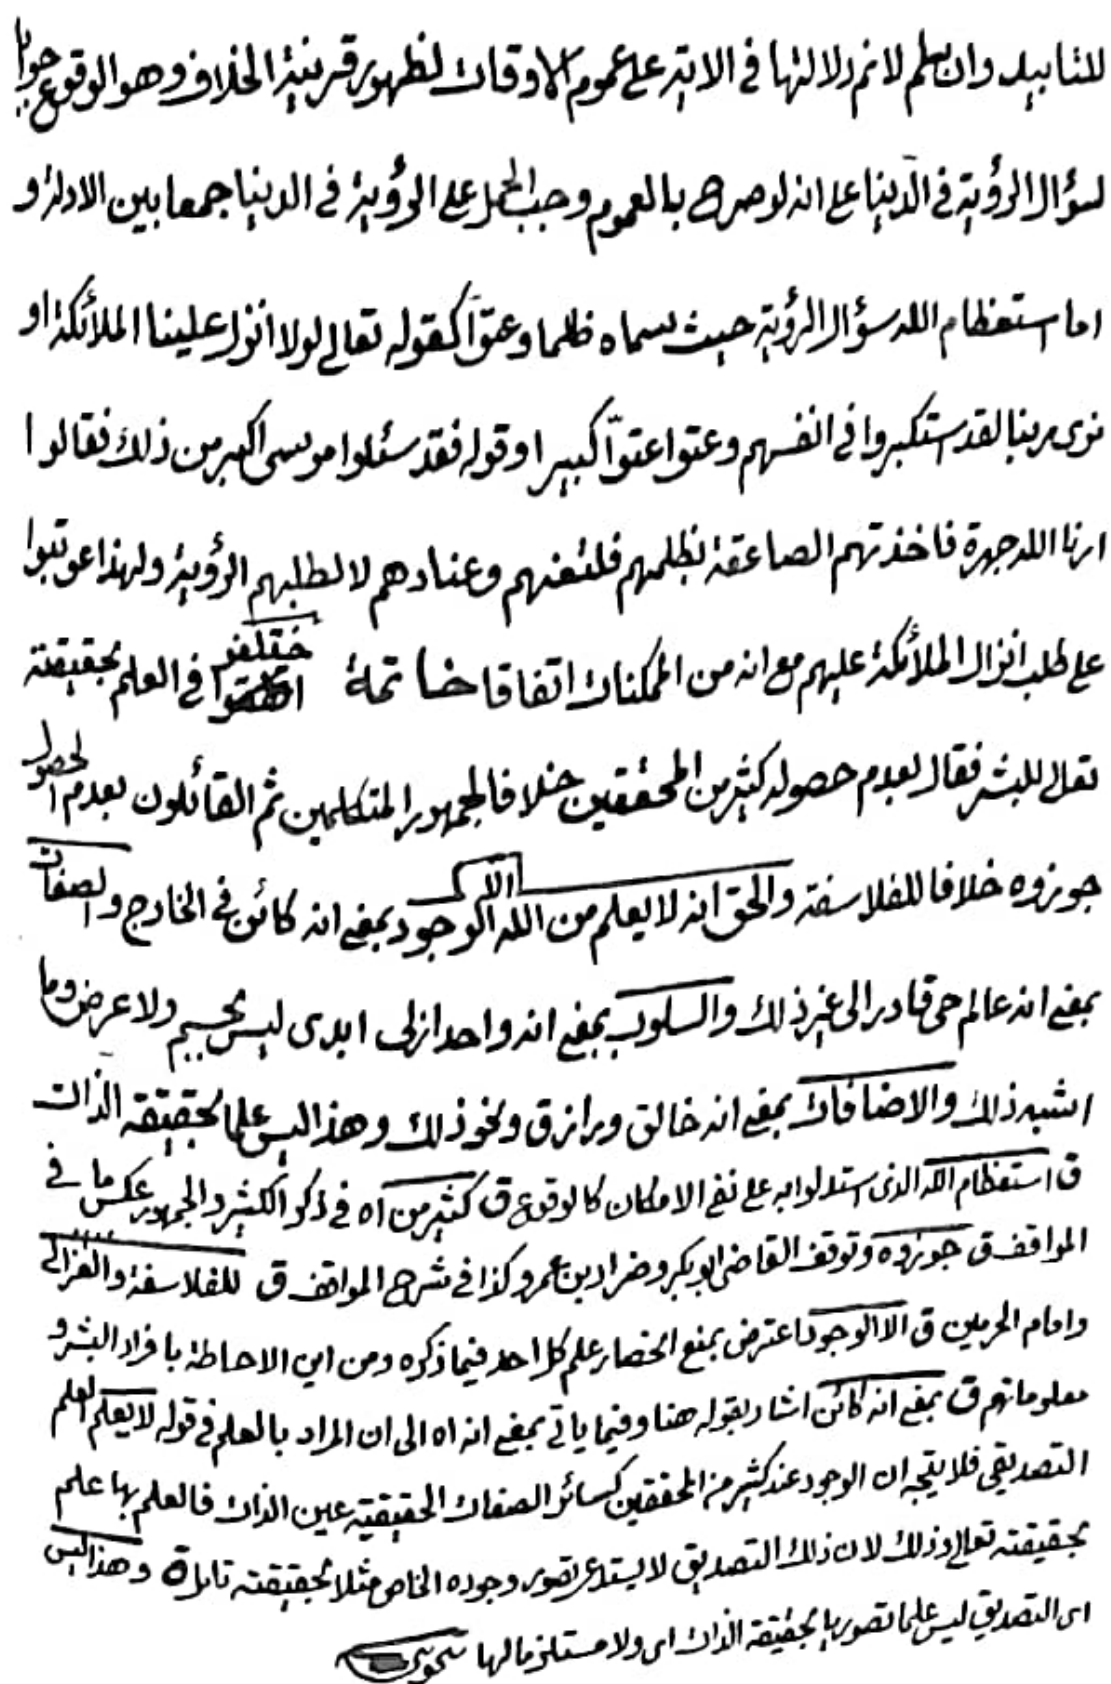 للتابيد وان سلم لانم دلالتها في الاية على عموم الاوقات لظهور قرينة الخلاف وهو الوقوع جوابا
لسؤال الرؤية في الدّنيا على انه لو صرح بالعموم وجب الحمل على الرؤية في الدينا جمعا بين الادلة و
اما استعظام الله سؤال الرؤية حيث سماه ظلما وعتوّا كقوله تعالى لولا انزل علينا الملائكة او
نرى ربنا لقد استكبروا في انفسهم وعتوا عتوّا كبيرا وقوله فقد سئلوا موسى اكبر من ذلك فقالوا
ارنا الله جهرة فاخذتهم الصاعقة بظلمهم فلتعنتهم وعنادهم لا لطلبهم الرؤية ولهذا عوتبوا
على طلب انزال الملائكة عليهم مع انه من الممكنات اتفاقا خاتمة اختلفوا في العلم بحقيقته
تعالى للبشر فقال بعدم حصوله كثير من المحققين خلافا لجمهور المتكلمين ثم القائلون بعدم الحصول
جوزوه خلافا للفلاسفة والحق انه لا يعلم من الله الا الوجود بمعنى انه كائن في الخارج والصفات
بمعنى انه عالم حى قادر الى غير ذلك والسلوب بمعنى انه واحد ازلى ابدى ليس بجسم ولا عرض وما
اشبه ذلك والاضافات بمعنى انه خالق ورازق ونحو ذلك وهذا ليس علما بحقيقة الذات
ق استعظام الله الذى استدلوا به على نفى الامكان كالوقوع ق كثير من اه في ذكر الكثير والجمهور عكس ما في
المواقف ق جوزوه وتوقف القاضى ابو بكر وضرار بن عمرو كذا في شرح المواقف ق للفلاسفة والغزالى
وامام الحرمين ق الا الوجود اعترض بمنع انحصار علم كل احد فيما ذكره ومن اين الاحاطة بافراد البشر و
معلوماتهم ق بمعنى انه كائن اشار بقوله هنا وفيما ياتي بمعنى انه اه الى ان المراد بالعلم في قوله لا يعلم العلم
التصديقى فلا يتجه ان الوجود عند كثير من المحققين كسائر الصفات الحقيقية عين الذات فالعلم بها علم
بحقيقته تعالى وذلك لان ذلك التصديق لا يستدعى تصور وجوده الخاص مثلا بحقيقته تامل ق وهذا ليس
اى التصديق ليس علما تصوريا بحقيقة الذات اى ولا مستلزما لها